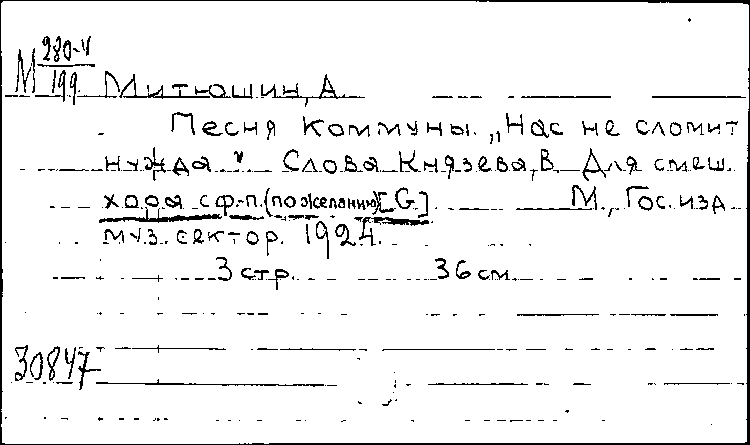 М 280-V
199
Митюшин, А.
Песня Коммуны. „Нас не сломит
нужда" Слова Князева, В. Для смеш.
хора с ф.-п. (по желанию) [G] М., Гос. изд.
муз. сектор. 1924.
3 стр. 36 см.
30847